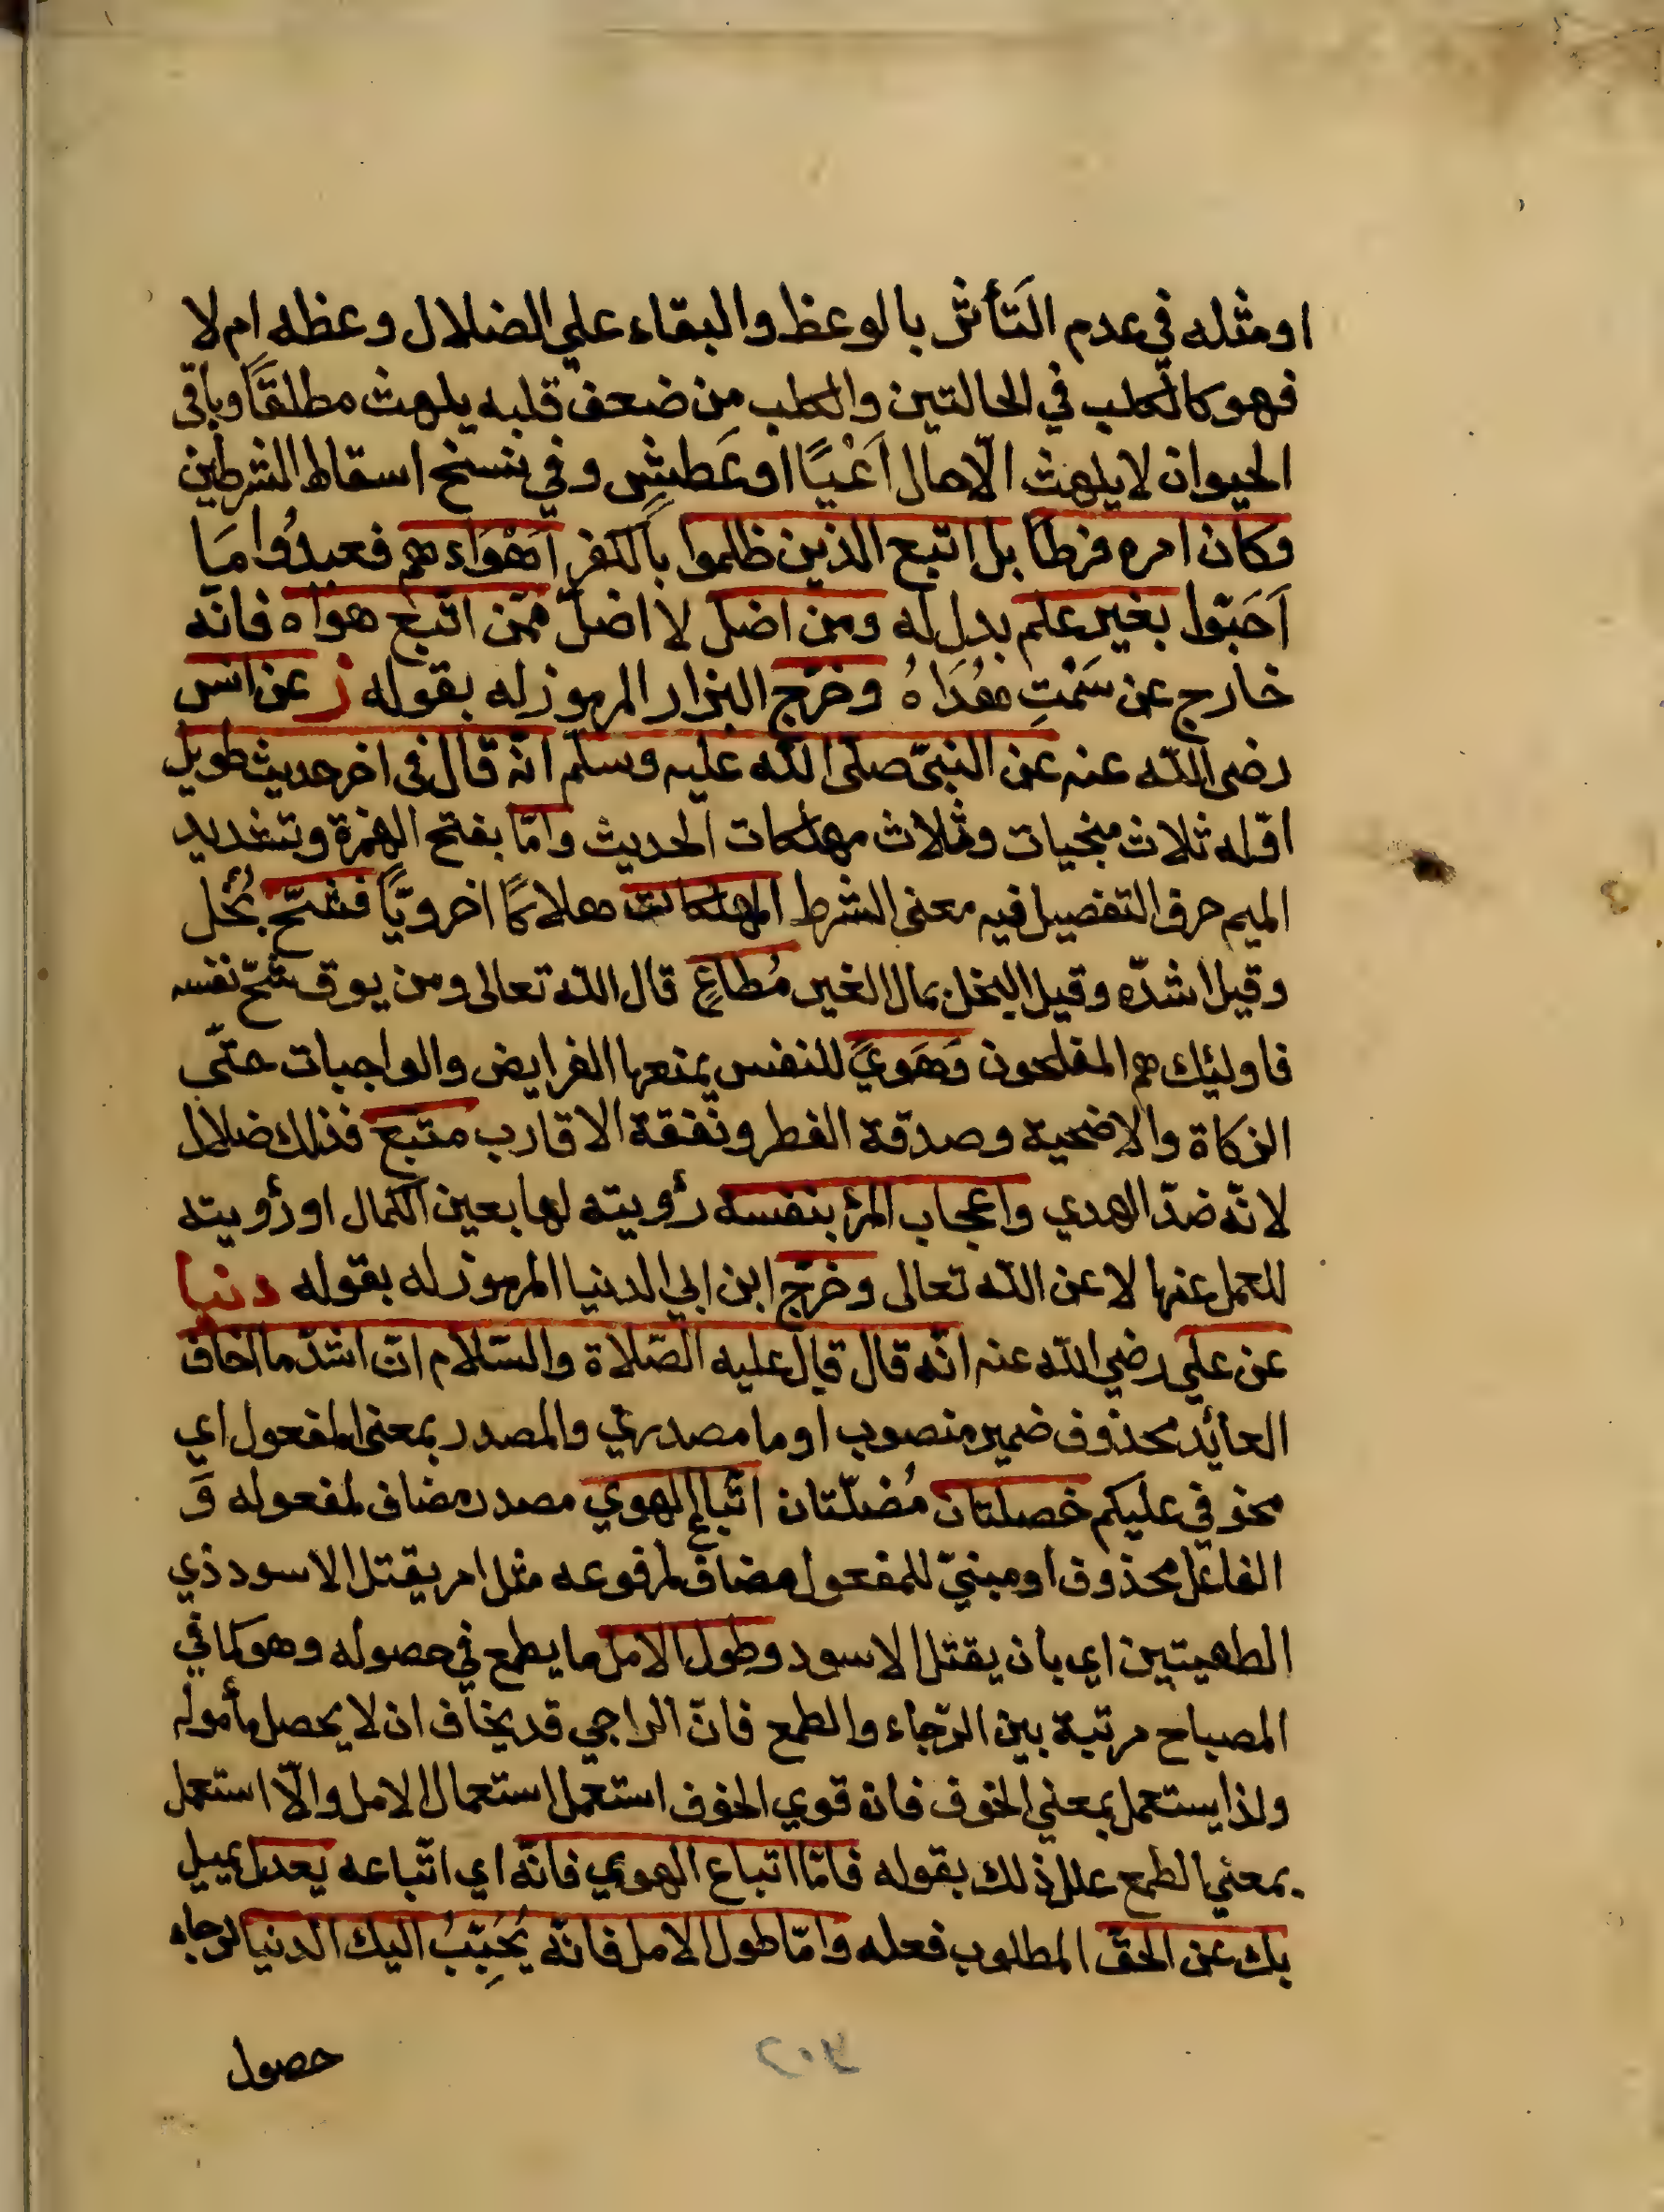 او مثله في عدم التَأثر بالوعظ والبقاء علي الضلال وعظه ام لا
فهو كالكلب في الحالتين والكلب مِن ضعف قلبه يلهث مطلقًا وباقى
الحيوان لا يلهث الّا حال اَعْيًا او عَطشٍ وفي نسخ اسقاط الشرطين
وكان امره فرطا بل اتبع الذين ظلموا بالكفر اَهْوَاءهم فعبدُوا مَا
اَحَبّوا بغير علم بدل له ومن اضل لا اضلّ ممّن اتبع هواه فانّه
خارج عن سَمْتِ هُدَاهُ وخرّج البزار المرموز له بقوله ز عن انس
رضى الله عنه عن النبيّ صلى الله عليه وسلم انّه قال فى اخر حديث طويل
اوّله ثلاث منجيات وثلاث مهلكات الحديث وامّا بفتح الهمزة وتشديد
الميم حرف التفصيل فيه معنى الشرط المهلكات هلاكًا اخرويًّا فشحّ بُخل
وقيل اشدّه وقيل البخل بمال الغير مُطاعٍ قال الله تعالى ومن يوق شحّ نفسه
فاوليئك هم المفلحون وَهَويً للنفس يمنعها الفرايض والواجبات حتّي
الزكاة والاضحية وصدقة الفطر ونفقة الاقارب متبع فذلك ضلال
لانّه ضدّ الهدي واعجاب المرْ بنفسه رؤيته لها بعين الكمال او رؤيته
للعمل عنها لا عن الله تعالى وخرّج ابن ابي الدنيا المرموز له بقوله دنيا
عن علي رضي الله عنه انّه قال قال عليه الصّلاة والسّلام انّ اشدّ ما اخاف
العائد محذوف ضمير منصوب او ما مصدري والمصدر بمعنى المفعول اي
مخوفي عليكم خصلتان مُضلّتان اتّباع الهوي مصدر مضاف لمفعوله وَ
الفاعل محذوف او مبنيّ للمفعول مضاف لمرفوعه مثل امر بقتل الاسود ذي
الطهيتين اي بان يقتل الاسود وطول الامل ما يطمع في حصوله وهو كما في
المصباح مرتبة بين الرّجاء والطمع فانّ الراجي قد يخاف ان لا يحصل مأموله
ولذا يستعمل بمعني الخوف فان قوي الخوف استعمل استعمال الامل والّا استعمل
بمعني الطمع علل ذلك بقوله فامّا اتباع الهوي فانّه اي اتّباعه يعدل يميل
بك عن الحقّ المطلوب فعله وامّا طول الامل فانّه يُحَبِّبُ اليك الدنيا لرجاء
حصول